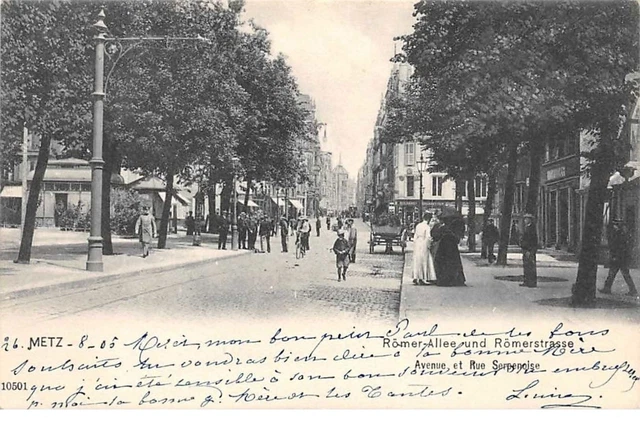 26. METZ - 8 - 05 Merci, mon bon petit Paul de tes bons
Römer-Allee und Römerstrasse
souhaits tu voudras bien dire à ta bonne Mère
Avenue et Rue Serpenoise
que j'ai été sensible à son bon souvenir
10501
p. moi ta bonne g. Mère et tes Tantes. Louise